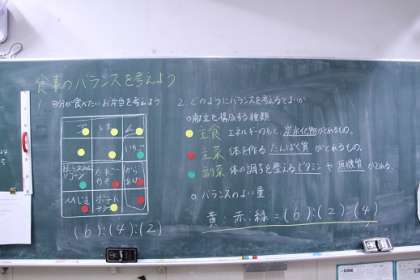 食事のバランスを考えよう
1. 自分が食べたいお弁当を考えよう
(6):(4):(2)
2. どのようにバランスを考えるとよいか
○献立を構成する種類
主食 エネルギーのもと、炭水化物がとれるもの。
主菜 体を作る たんぱく質 がとれるもの。
副菜 体の調子を整える ビタミン や 無機質 がとれる。
○バランスのよい量
黄:赤:緑=(6):(2):(4)